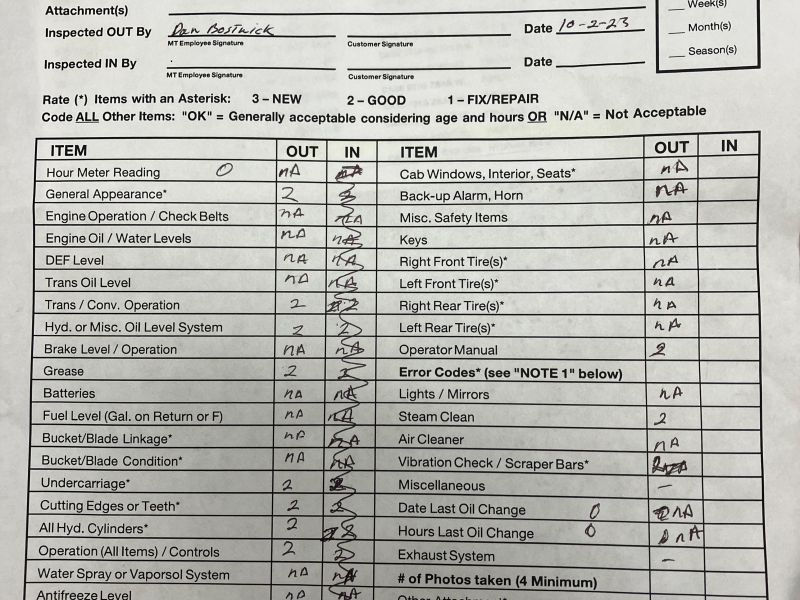 Attachment(s)
Week(s)
Inspected OUT By Dan Bostwick Date 10-2-23
MT Employee Signature Customer Signature
Month(s)
Season(s)
Inspected IN By Date
MT Employee Signature Customer Signature
Rate (*) Items with an Asterisk: 3 – NEW 2 – GOOD 1 – FIX/REPAIR
Code ALL Other Items: "OK" = Generally acceptable considering age and hours OR "N/A" = Not Acceptable
ITEM OUT IN ITEM OUT IN
Hour Meter Reading 0 nA nA Cab Windows, Interior, Seats* nA
General Appearance* 2 Back-up Alarm, Horn nA
Engine Operation / Check Belts nA nA Misc. Safety Items nA
Engine Oil / Water Levels nA nA Keys nA
DEF Level nA nA Right Front Tire(s)* nA
Trans Oil Level nA nA Left Front Tire(s)* nA
Trans / Conv. Operation 2 2 Right Rear Tire(s)* nA
Hyd. or Misc. Oil Level System 2 2 Left Rear Tire(s)* nA
Brake Level / Operation nA nA Operator Manual 2
Grease 2 2 Error Codes* (see "NOTE 1" below)
Batteries nA nA Lights / Mirrors nA
Fuel Level (Gal. on Return or F) nA nA Steam Clean 2
Bucket/Blade Linkage* nA nA Air Cleaner nA
Bucket/Blade Condition* nA nA Vibration Check / Scraper Bars* 2
Undercarriage* 2 2 Miscellaneous –
Cutting Edges or Teeth* 2 2 Date Last Oil Change 0 nA
All Hyd. Cylinders* 2 2 Hours Last Oil Change 0 0 nA
Operation (All Items) / Controls 2 2 Exhaust System –
Water Spray or Vaporsol System nA nA # of Photos taken (4 Minimum)
Antifreeze Level nA nA